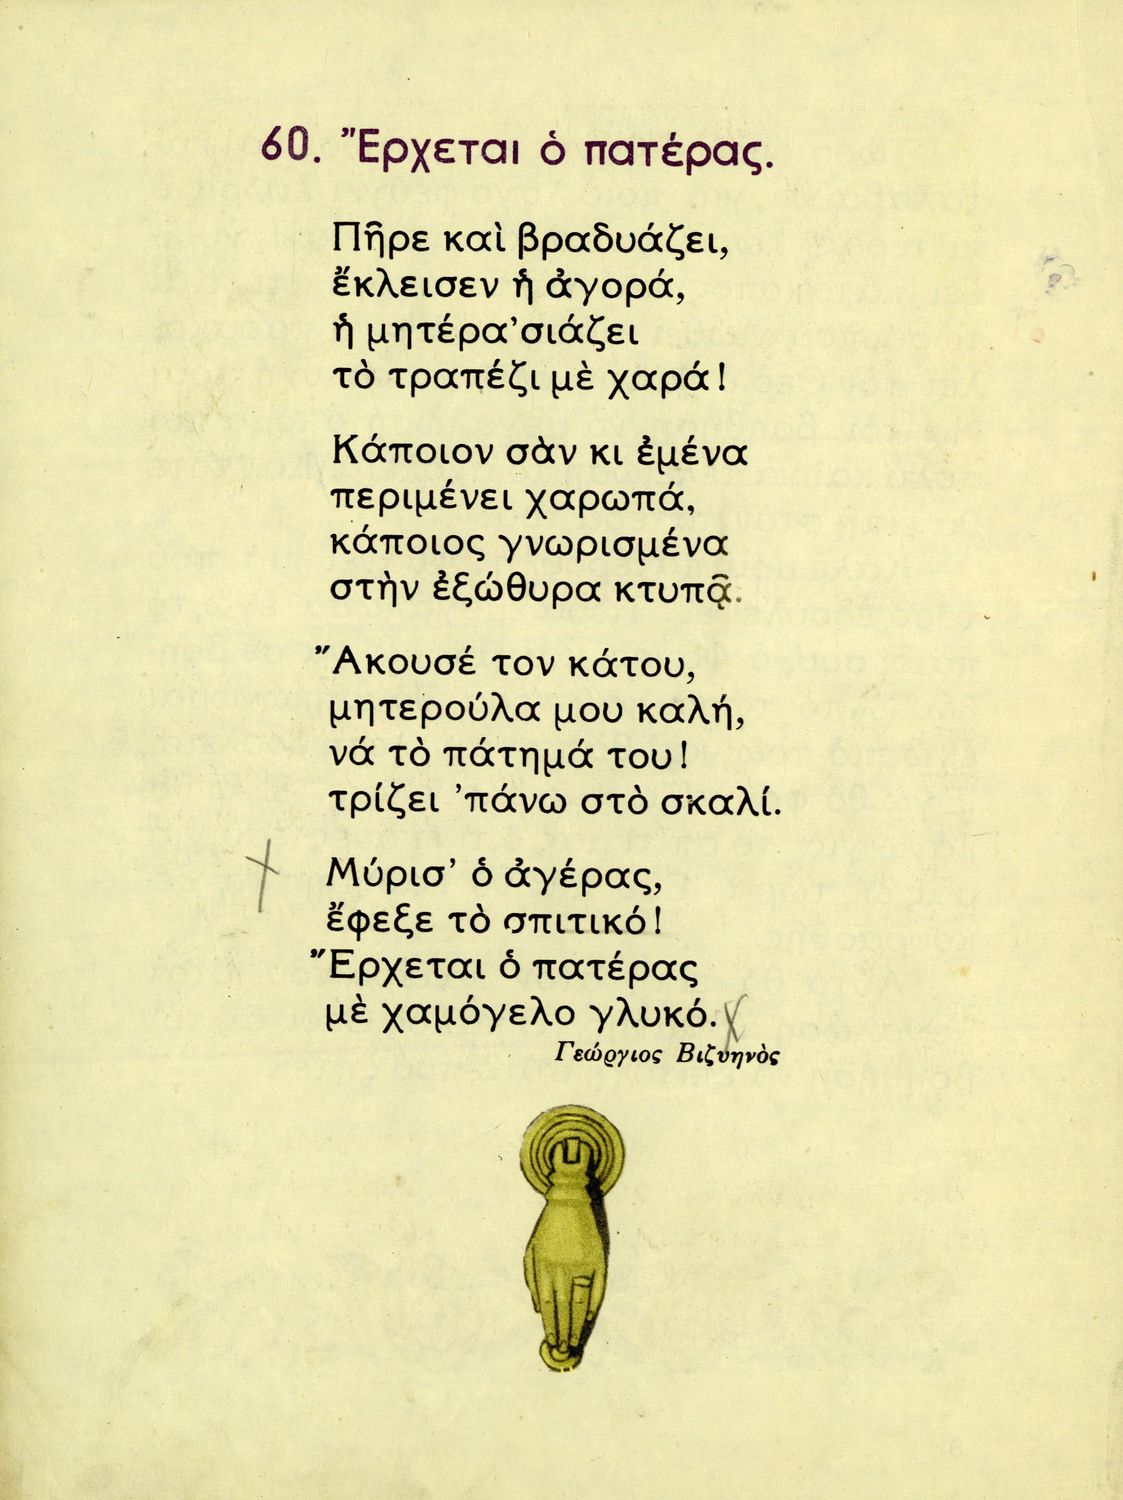 60. Ἔρχεται ὁ πατέρας.
Πῆρε καὶ βραδυάζει,
ἔκλεισεν ἡ ἀγορά,
ἡ μητέρα ’σιάζει
τὸ τραπέζι μὲ χαρά!
Κάποιον σὰν κι ἐμένα
περιμένει χαρωπά,
κάποιος γνωρισμένα
στὴν ἐξώθυρα κτυπᾷ.
Ἄκουσέ τον κάτου,
μητερούλα μου καλή,
νά τὸ πάτημά του!
τρίζει ’πάνω στὸ σκαλί.
Μύρισ’ ὁ ἀγέρας,
ἔφεξε τὸ σπιτικό!
Ἔρχεται ὁ πατέρας
μὲ χαμόγελο γλυκό.
Γεώργιος Βιζυηνὸς